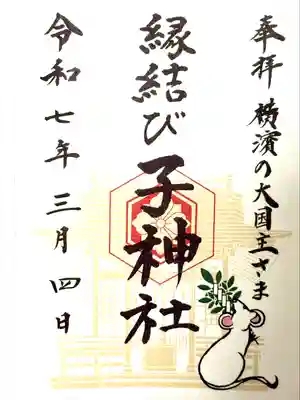 奉拝 横濱の大国主さま
縁結び 子神社
令和七年 三月 四日